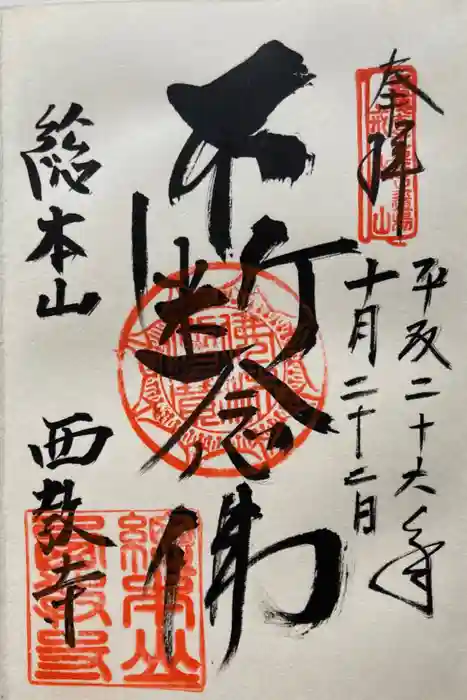 奉拝
平成二十六年
十月二十二日
不断念佛
総本山
西教寺